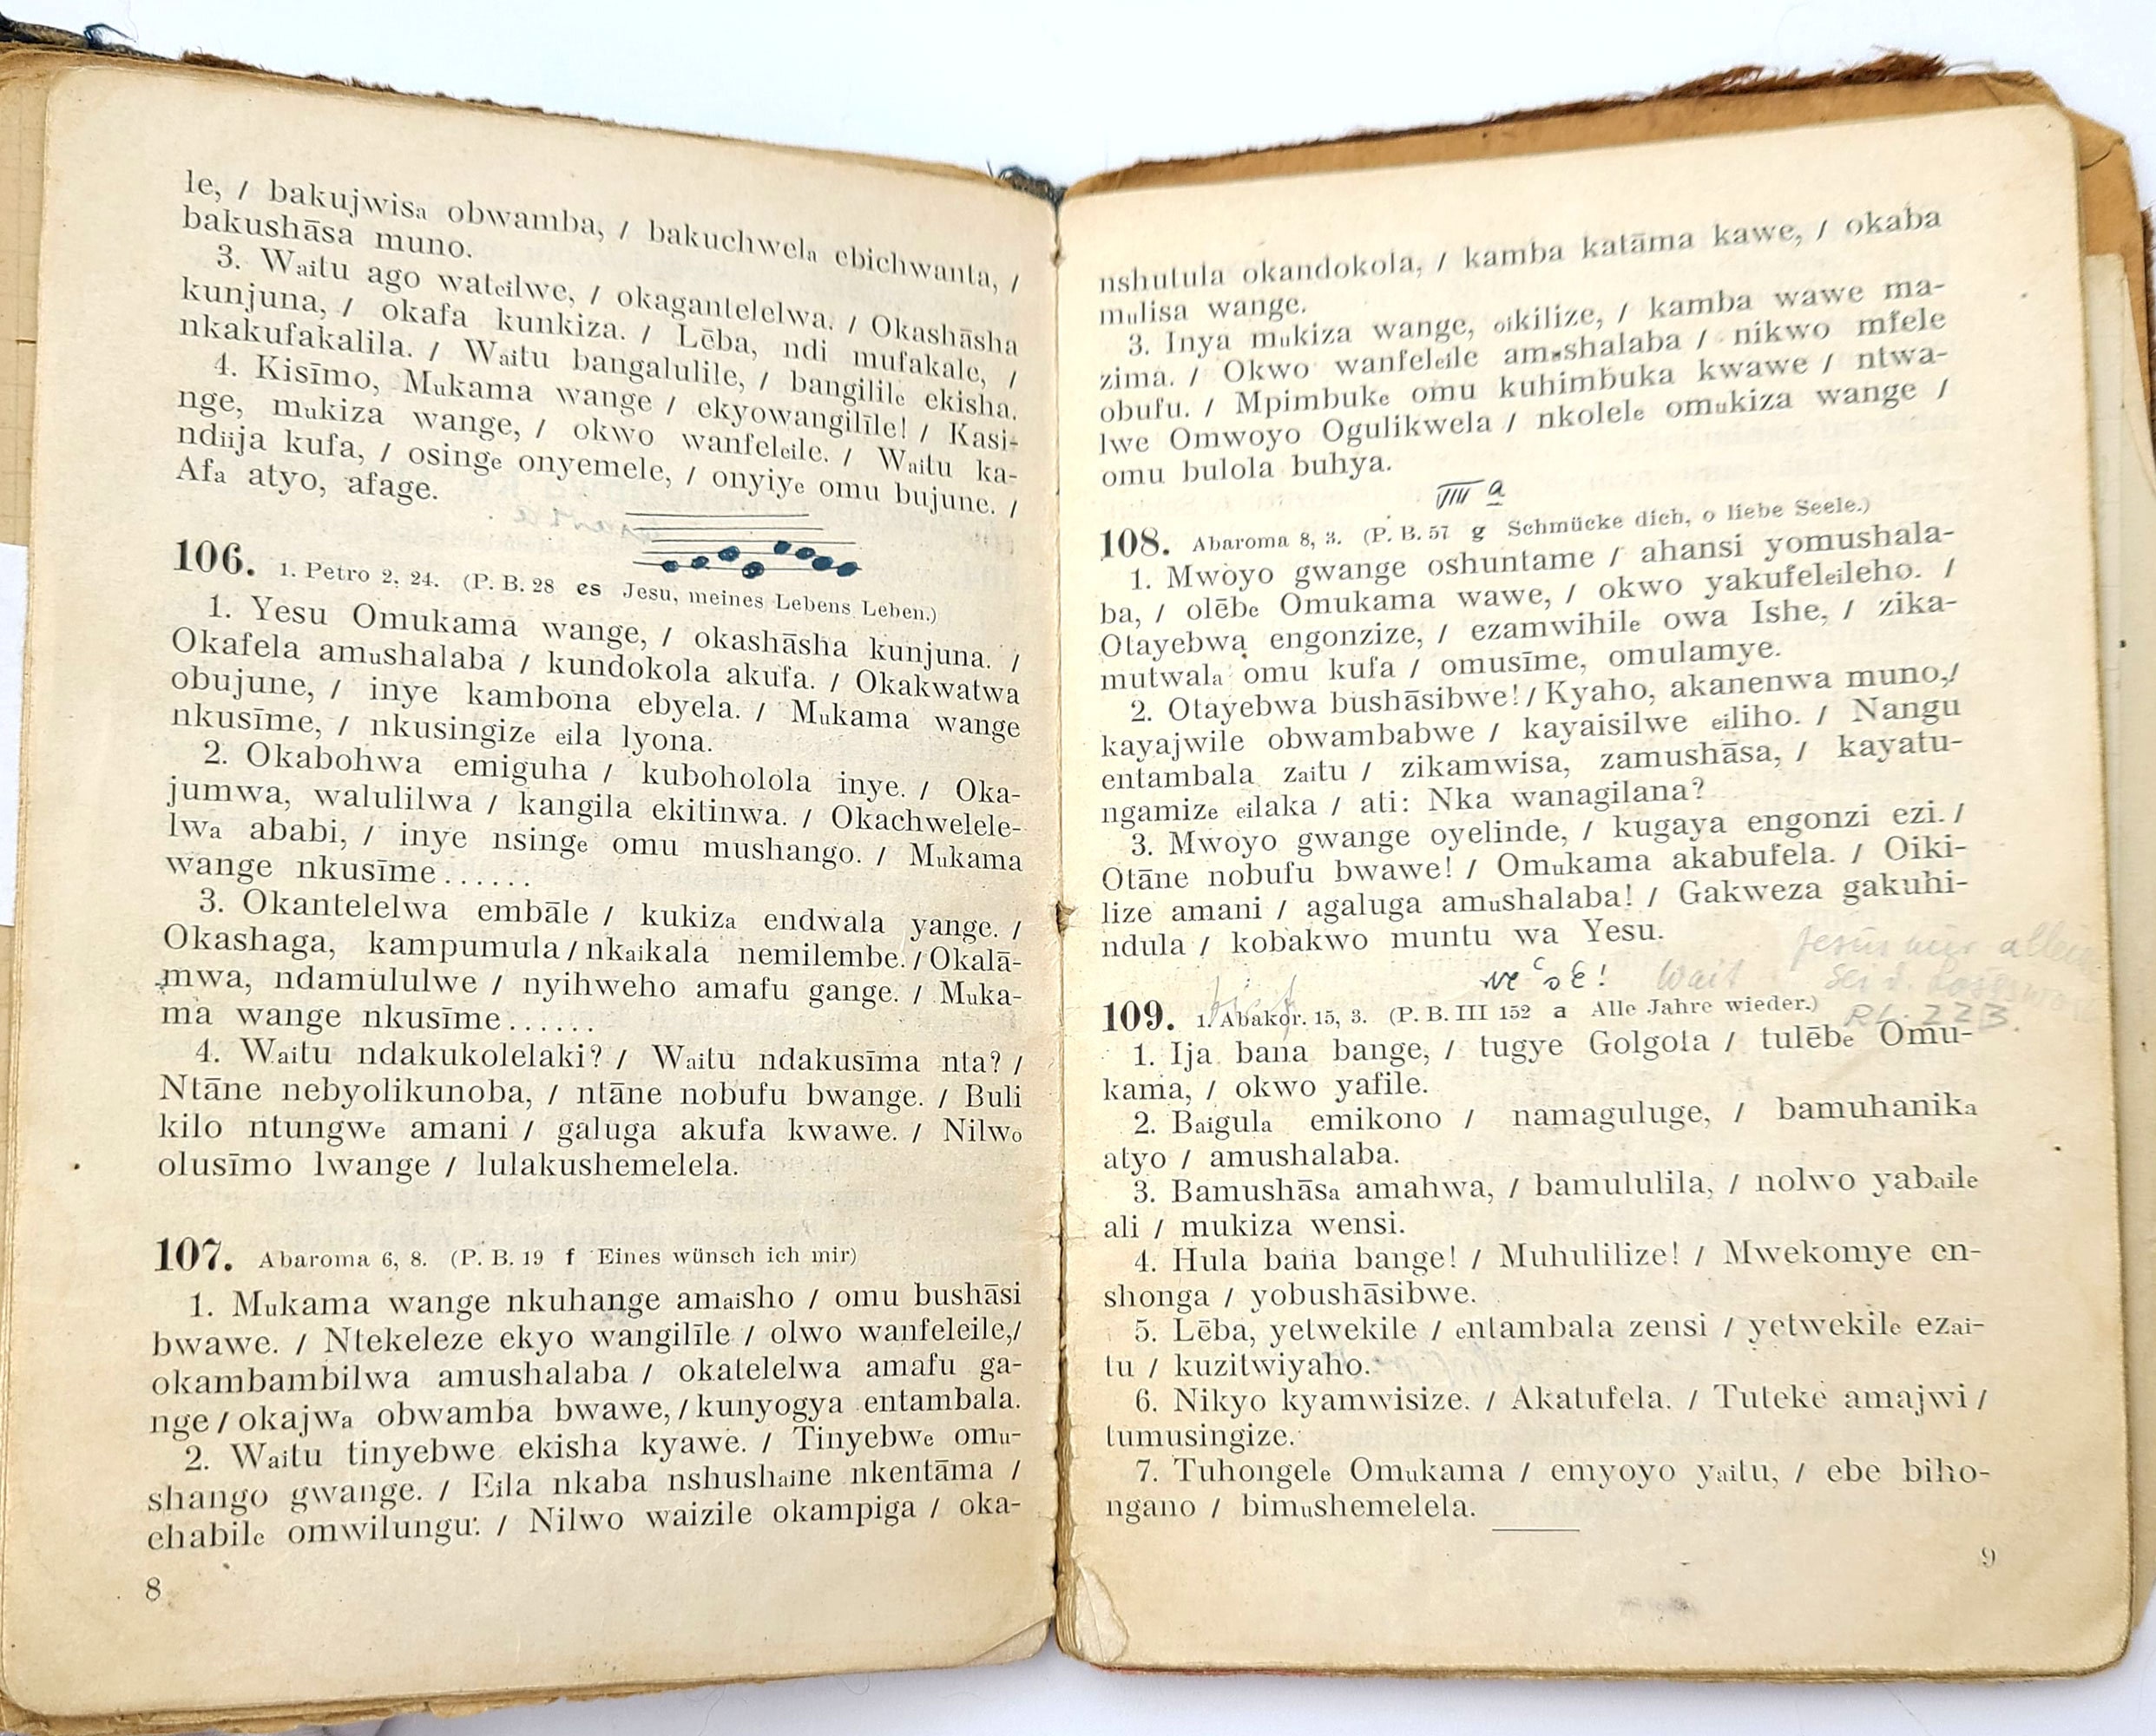 le, / bakujwisa obwamba, / bakuchwela ebichwanta, /
bakushāsa muno.
3. Waitu ago wateilwe, / okagantelelwa. / Okashāsha
kunjuna, / okafa kunkiza. / Lēba, ndi mufakale, /
nkakufakalila. / Waitu bangalulile, / bangilile ekisha.
4. Kisīmo, Mukama wange / ekyowangilīle! / Kasi-
nge, mukiza wange, / okwo wanfeleile. / Waitu ka-
ndiija kufa, / osinge onyemele, / onyiye omu bujune. /
Afa atyo, afage.
106. 1. Petro 2, 24. (P. B. 28 es Jesu, meines Lebens Leben.)
1. Yesu Omukama wange, / okashāsha kunjuna. /
Okafela amushalaba / kundokola akufa. / Okakwatwa
obujune, / inye kambona ebyela. / Mukama wange
nkusīme, / nkusingize eila lyona.
2. Okabohwa emiguha / kuboholola inye. / Oka-
jumwa, walulilwa / kangila ekitinwa. / Okachwelele-
lwa ababi, / inye nsinge omu mushango. / Mukama
wange nkusīme ......
3. Okantelelwa embāle / kukiza endwala yange. /
Okashaga, kampumula / nkaikala nemilembe. / Okalā-
mwa, ndamululwe / nyihweho amafu gange. / Muka-
ma wange nkusīme ......
4. Waitu ndakukolelaki? / Waitu ndakusīma nta? /
Ntāne nebyolikunoba, / ntāne nobufu bwange. / Buli
kilo ntungwe amani / galuga akufa kwawe. / Nilwo
olusīmo lwange / lulakushemelela.
107. Abaroma 6, 8. (P. B. 19 f Eines wünsch ich mir)
1. Mukama wange nkuhange amaisho / omu bushāsi
bwawe. / Ntekeleze ekyo wangilīle / olwo wanfeleile, /
okambambilwa amushalaba / okatelelwa amafu ga-
nge / okajwa obwamba bwawe, / kunyogya entambala.
2. Waitu tinyebwe ekisha kyawe. / Tinyebwe omu-
shango gwange. / Eila nkaba nshushaine nkentāma /
ehabile omwilungu. / Nilwo waizile okampiga / oka-
8
nshutula okandokola, / kamba katāma kawe, / okaba
mulisa wange.
3. Inya mukiza wange, oikilize, / kamba wawe ma-
zima. / Okwo wanfeleile amushalaba / nikwo mfele
obufu. / Mpimbuke omu kuhimbuka kwawe / ntwa-
lwe Omwoyo Ogulikwela / nkolele omukiza wange /
omu bulola buhya.
VIII a
108. Abaroma 8, 3. (P. B. 57 g Schmücke dich, o liebe Seele.)
1. Mwoyo gwange oshuntame / ahansi yomushala-
ba, / olēbe Omukama wawe, / okwo yakufeleileho. /
Otayebwa engonzize, / ezamwihile owa Ishe, / zika-
mutwala omu kufa / omusīme, omulamye.
2. Otayebwa bushāsibwe! / Kyaho, akanenwa muno, /
kayajwile obwambabwe / kayaisilwe eiliho. / Nangu
entambala zaitu / zikamwisa, zamushāsa, / kayatu-
ngamize eilaka / ati: Nka wanagilana?
3. Mwoyo gwange oyelinde, / kugaya engonzi ezi. /
Otāne nobufu bwawe! / Omukama akabufela. / Oiki-
lize amani / agaluga amushalaba! / Gakweza gakuhi-
ndula / kobakwo muntu wa Yesu.
Wait
109. 1. Abakor. 15, 3. (P. B. III 152 a Alle Jahre wieder.) 223.
1. Ija bana bange, / tugye Golgota / tulēbe Omu-
kama, / okwo yafile.
2. Baigula emikono / namaguluge, / bamuhanika
atyo / amushalaba.
3. Bamushāsa amahwa, / bamululila, / nolwo yabaile
ali / mukiza wensi.
4. Hula bana bange! / Muhulilize! / Mwekomye en-
shonga / yobushāsibwe.
5. Lēba, yetwekile / entambala zensi / yetwekile ezai-
tu / kuzitwiyaho.
6. Nikyo kyamwisize. / Akatufela. / Tuteke amajwi /
tumusingize.
7. Tuhongele Omukama / emyoyo yaitu, / ebe biho-
ngano / bimushemelela.
9